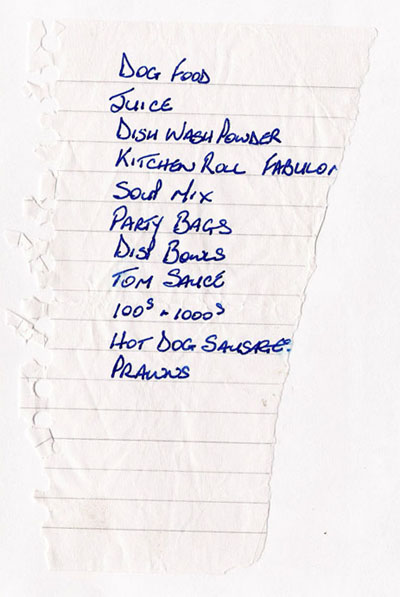 DOG FOOD
JUICE
DISH WASH POWDER
KITCHEN ROLL FABULO
SOUP MIX
PARTY BAGS
DISP BOWLS
TOM SAUCE
100s & 1000s
HOT DOG SAUSAGES
PRAWNS